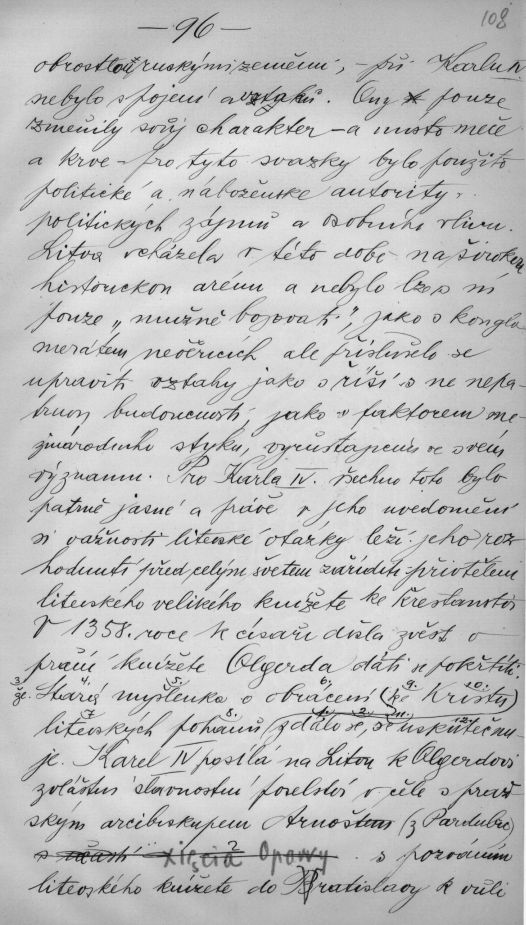 — 96 —
108
obrostlou ruskými zeměmi, – při Karluk
nebylo spojení a vztahů. Ony pouze
změnily svůj charakter – a místo meče
a krve – pro tyto svazky bylo použito
politické a náboženské autority,
politických zájmů a osobního vlivu.
Litva vcházela v této době na širokou
historickou arénu a nebylo lze s ní
pouze „mužně bojovati", jako s konglo-
merátem nevěřících ale příslušelo se
upraviti vztahy jako s říší s ne nepa-
trnou budoucností, jako s faktorem me-
zinárodního styku, vyrůstajícím ve svém
významu. Pro Karla IV. všechno toto bylo
patrně jasné a právě v jeho uvědomění
si važnosti litevské otázky leží jeho roz
hodnutí před celým světem zaříditi přivtělení
litevského velikého knížete ke křesťanství
V 1358. roce k císaři došla zvěst o
přání knížete Olgerda dáti se pokřtíti.
3. že 4. Stará 5. myšlenka o 6. obrácení (9. ke 10. Kristu
7. litevských 8. pohanů 1. zdálo se, 2. 11. se 12. uskutečňu-
je. Karel IV posílá na Litvu k Olgerdovi
zvláštní slavnostní poselství v čele s praž
ským arcibiskupem Arnoštem (z Pardubic)
s účastí xięcia Opawy s pozváním
litevského knížete do Vratislavy k vůli